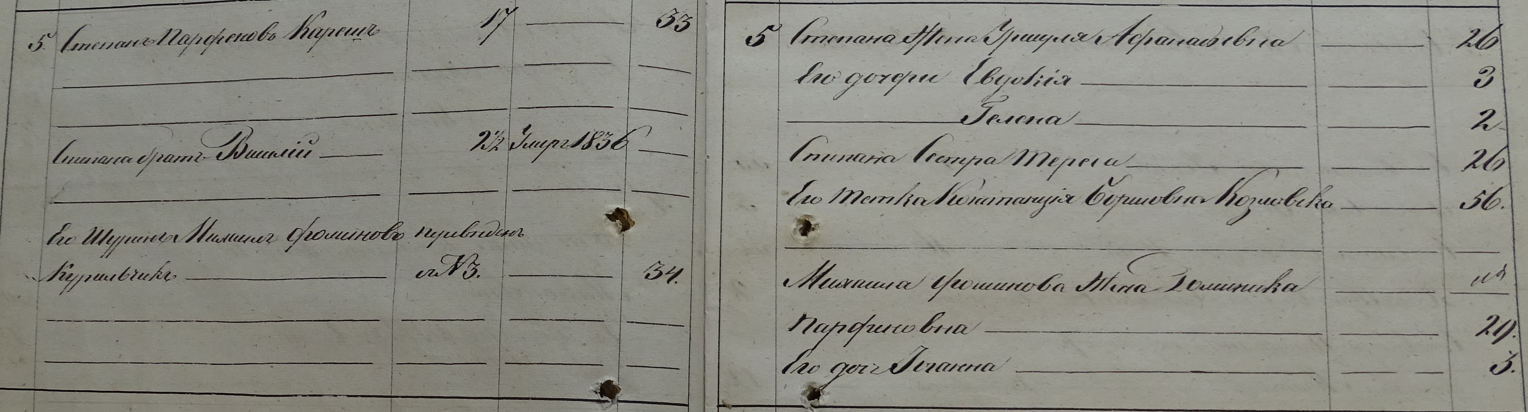 5. Степанъ Парфеновъ Карешъ 17 33
Степана братъ Василій 2½ Умир. 1836
Его Шуринъ Михаилъ Фоминовъ переведенъ
Курильчикъ съ №3. 34.
5 Степана Жена Уршуля Афанасьевна 26
Его дочери Евдокія 3
Гелена 2
Степана Сестра Тереса 26
Его Тетка Констанція Борисовна Козловска 56.
Михаила Фоминова Жена Доминика
Парфеновна 29.
Его дочь Іоганна 3.